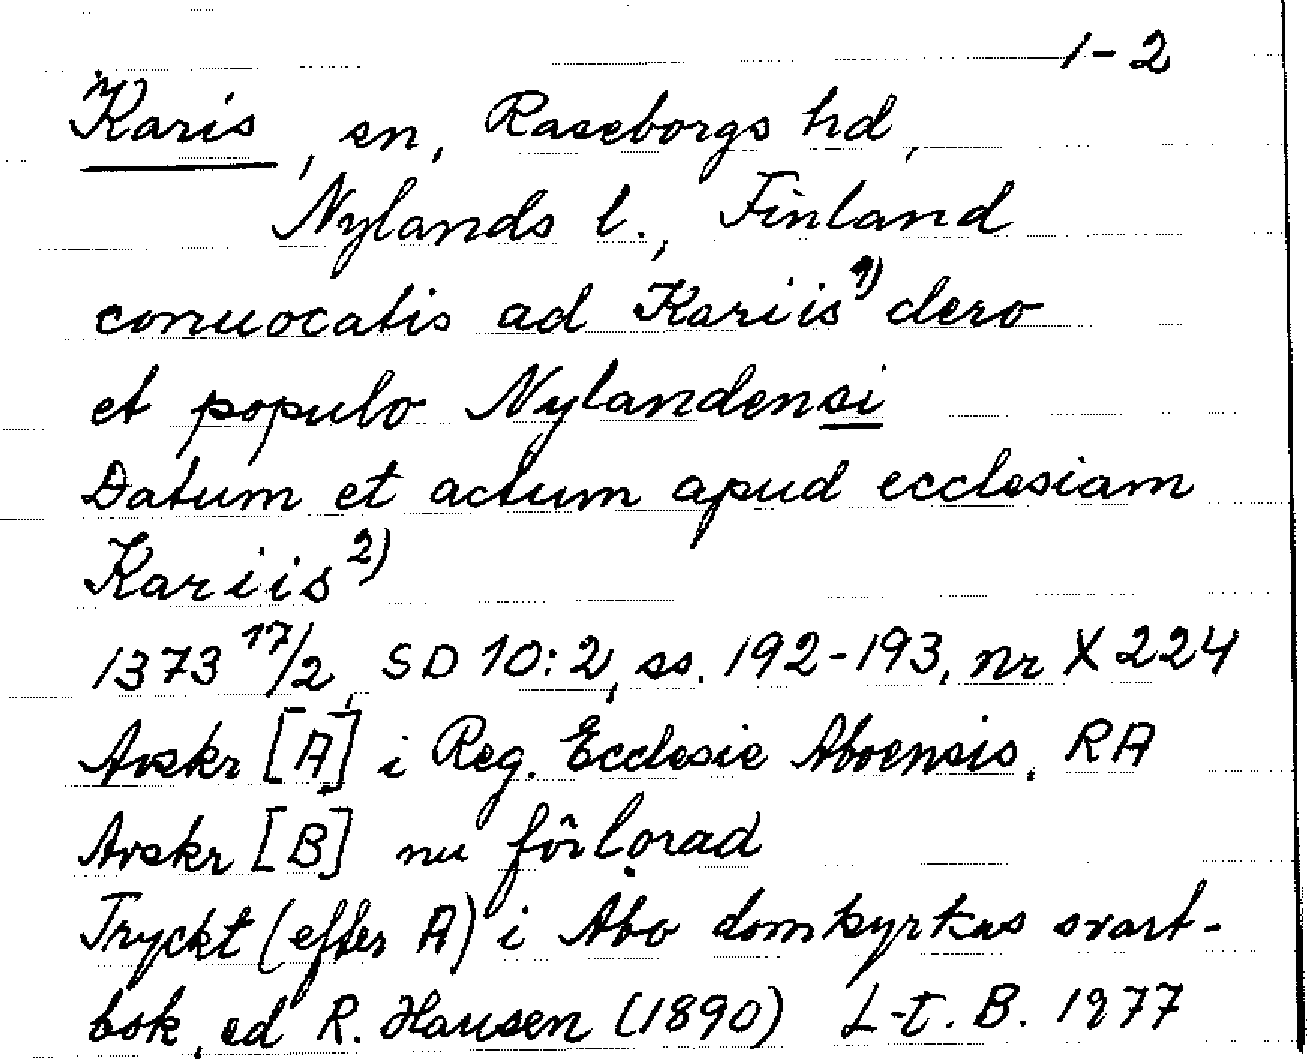 1-2
Karis, sn, Raseborgs hd,
Nylands l., Finland
conuocatis ad Kariis 1) clero
et populo Nylandensi
Datum et actum apud ecclesiam
Kariis 2)
1373 17/2, SD 10:2, ss. 192-193, nr X 224
Avskr [A] i Reg. Ecclesie Aboensis, RA
Avskr [B] nu förlorad
Tryckt (efter A) i Åbo domkyrkas svart-
bok, ed R. Hausen (1890) L-t. B. 1977